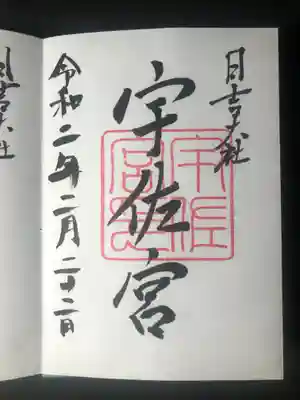 日吉大社
宇佐宮
宇佐
令和二年二月二十二日